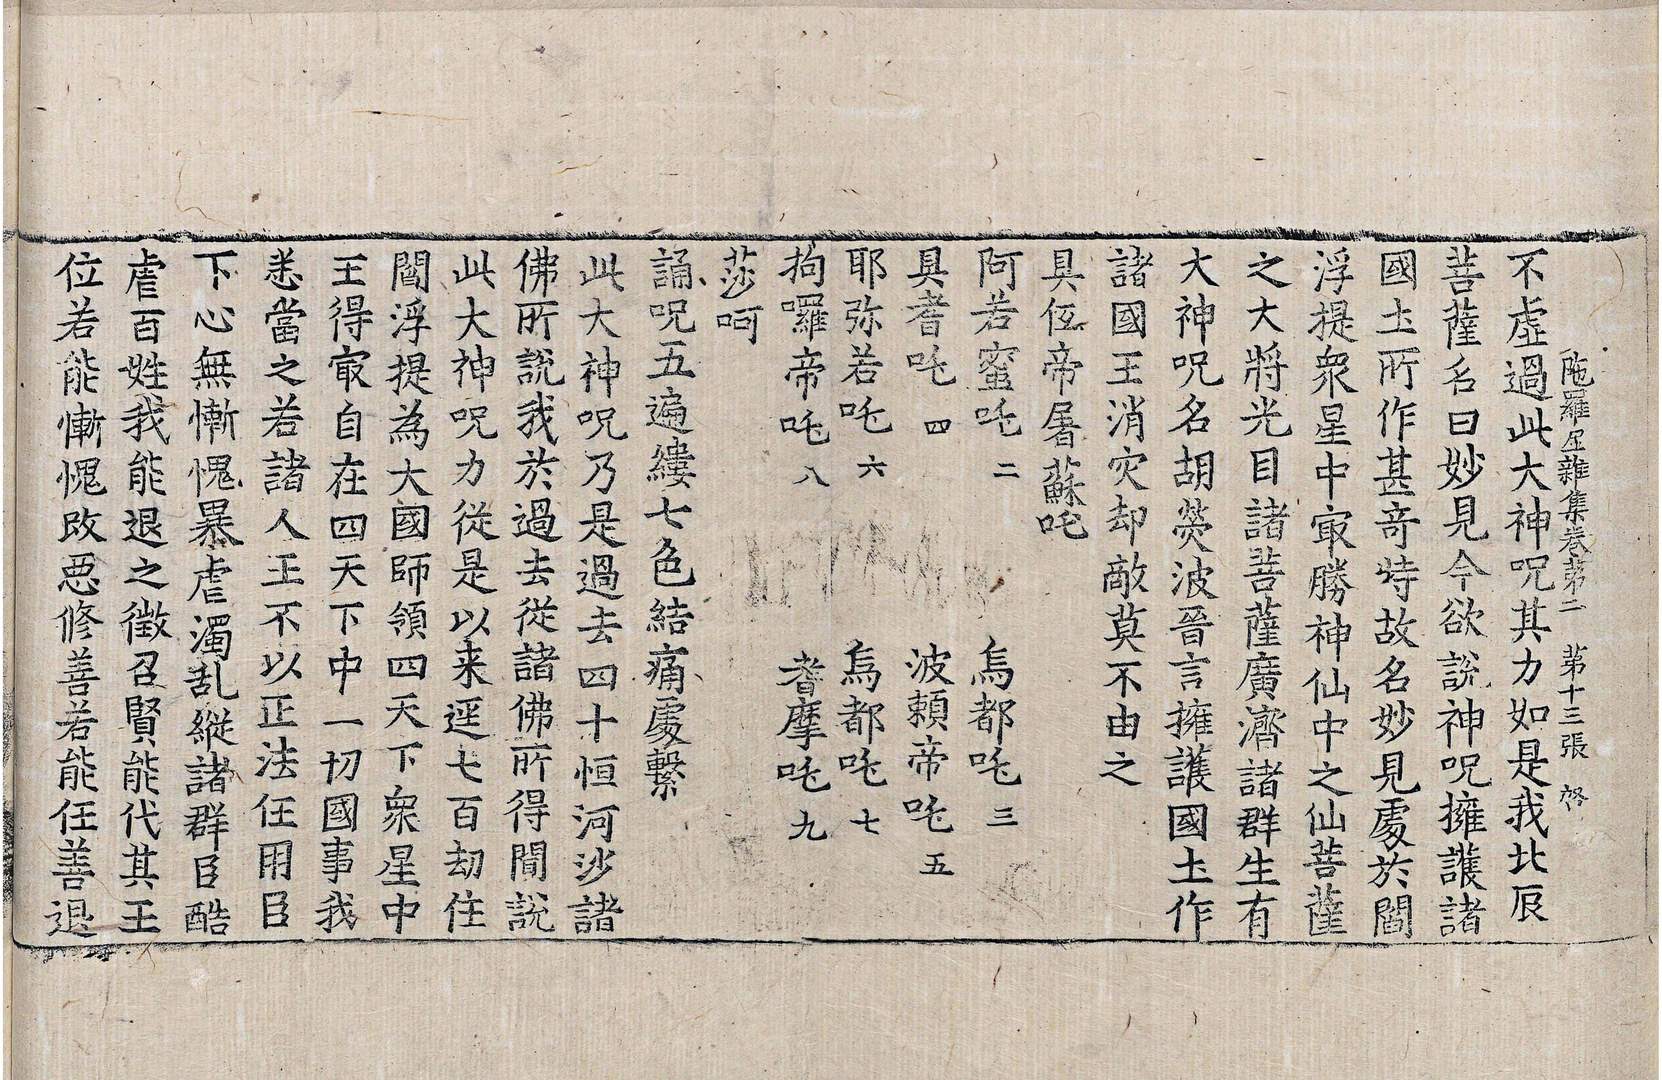 陁羅尼雜集卷苐二 苐十三張 啓
不虛過此大神呪其力如是我北辰
菩薩名曰妙見今欲說神呪擁護諸
國土所作甚竒特故名妙見處於閻
浮提衆星中㝡勝神仙中之仙菩薩
之大將光目諸菩薩廣濟諸群生有
大神呪名胡熒波晉言擁護國土作
諸國王消灾却敵莫不由之
具㑀帝屠蘇吒
阿若蜜吒 二 烏都吒 三
具耆吒 四 波頼帝吒 五
耶弥若吒 六 烏都吒 七
拘囉帝吒 八 耆摩吒 九
莎呵
誦呪五遍縷七色結痛處繫
此大神呪乃是過去四十恒河沙諸
佛所說我於過去從諸佛所得聞說
此大神呪力從是以来逕七百劫住
閻浮提為大國師領四天下衆星中
王得㝡自在四天下中一切國事我
悉當之若諸人王不以正法任用臣
下心無慚愧暴虐濁乱縱諸群臣酷
虐百姓我能退之徵召賢能代其王
位若能慚愧改惡修善若能任善退